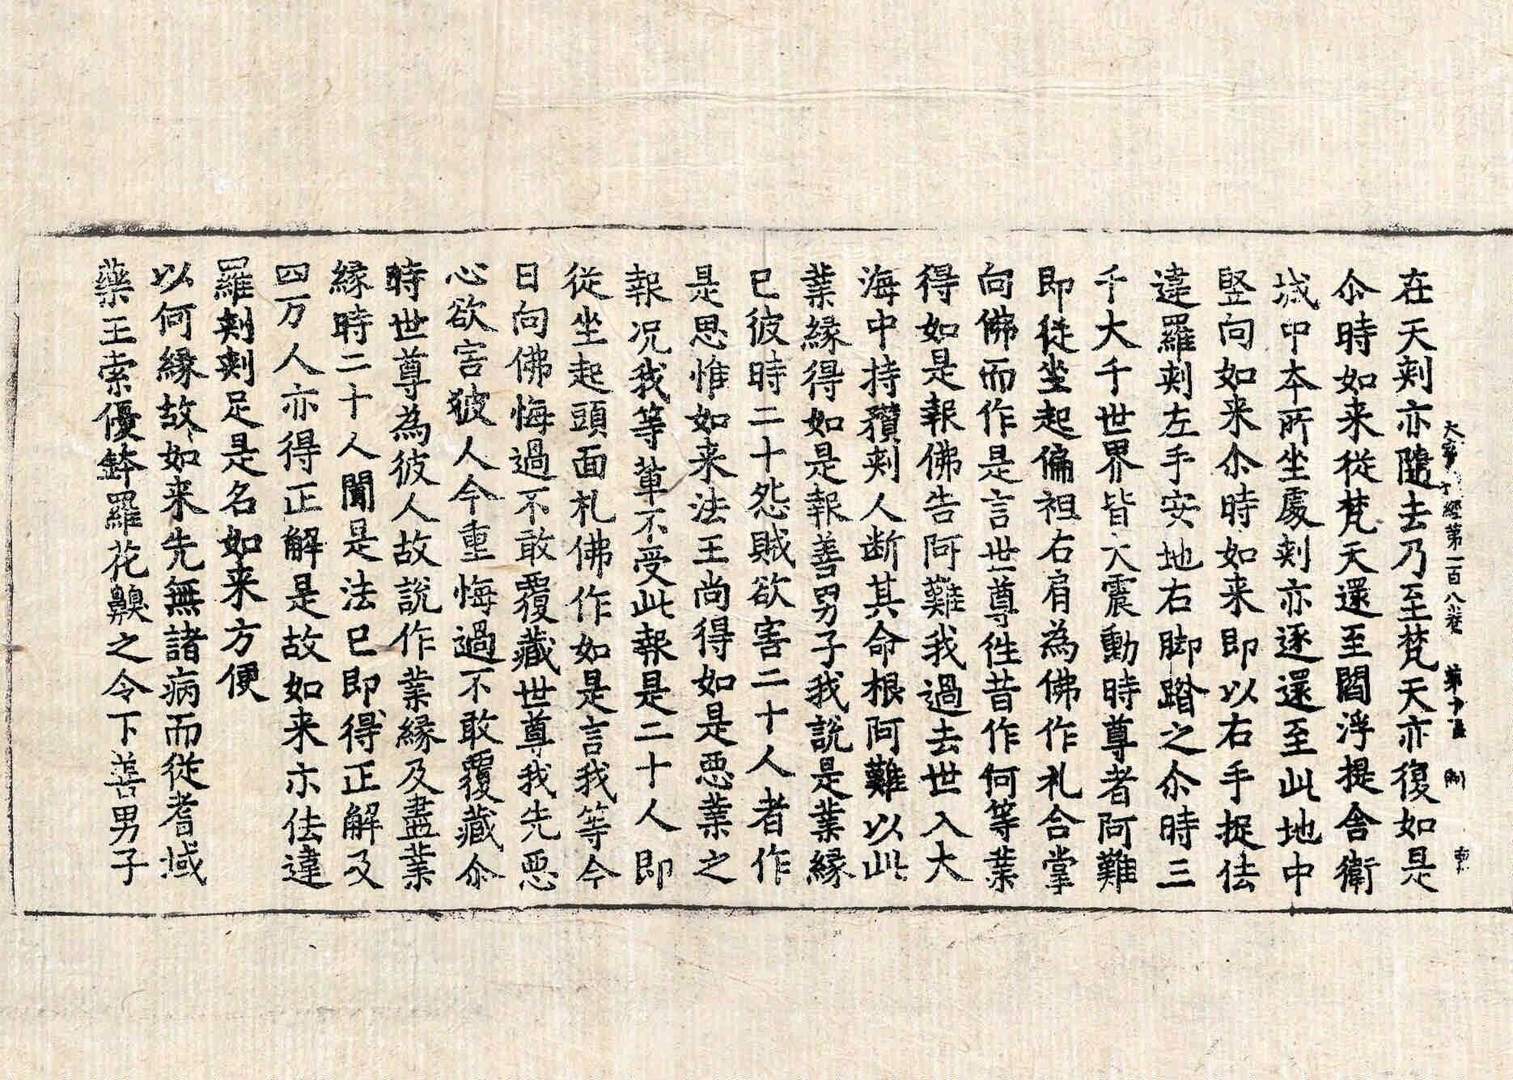 在天刾亦隨去乃至梵天亦復如是
大寳 經第一百八卷 第十 張 制
尒時如来従梵天還至閻浮提舎衛
城中本所坐處刾亦逐還至此地中
竪向如来尒時如来即以右手捉佉
違羅刾左手安地右脚踏之尒時三
千大千世界皆大震動時尊者阿難
即従坐起偏袒右肩為佛作礼合掌
向佛而作是言世尊徃昔作何等業
得如是報佛告阿難我過去世入大
海中持矟刾人断其命根阿難以此
業縁得如是報善男子我說是業縁
已彼時二十怨賊欲害二十人者作
是思惟如来法王尚得如是惡業之
報况我等軰不受此報是二十人即
従坐起頭面礼佛作如是言我等今
日向佛悔過不敢覆藏世尊我先惡
心欲害彼人今重悔過不敢覆藏尒
時世尊為彼人故說作業縁及盡業
縁時二十人聞是法已即得正解及
四万人亦得正解是故如来亦佉違
羅刾刾足是名如来方便
以何縁故如来先無諸病而従耆域
藥王索優鉢羅花齅之令下善男子